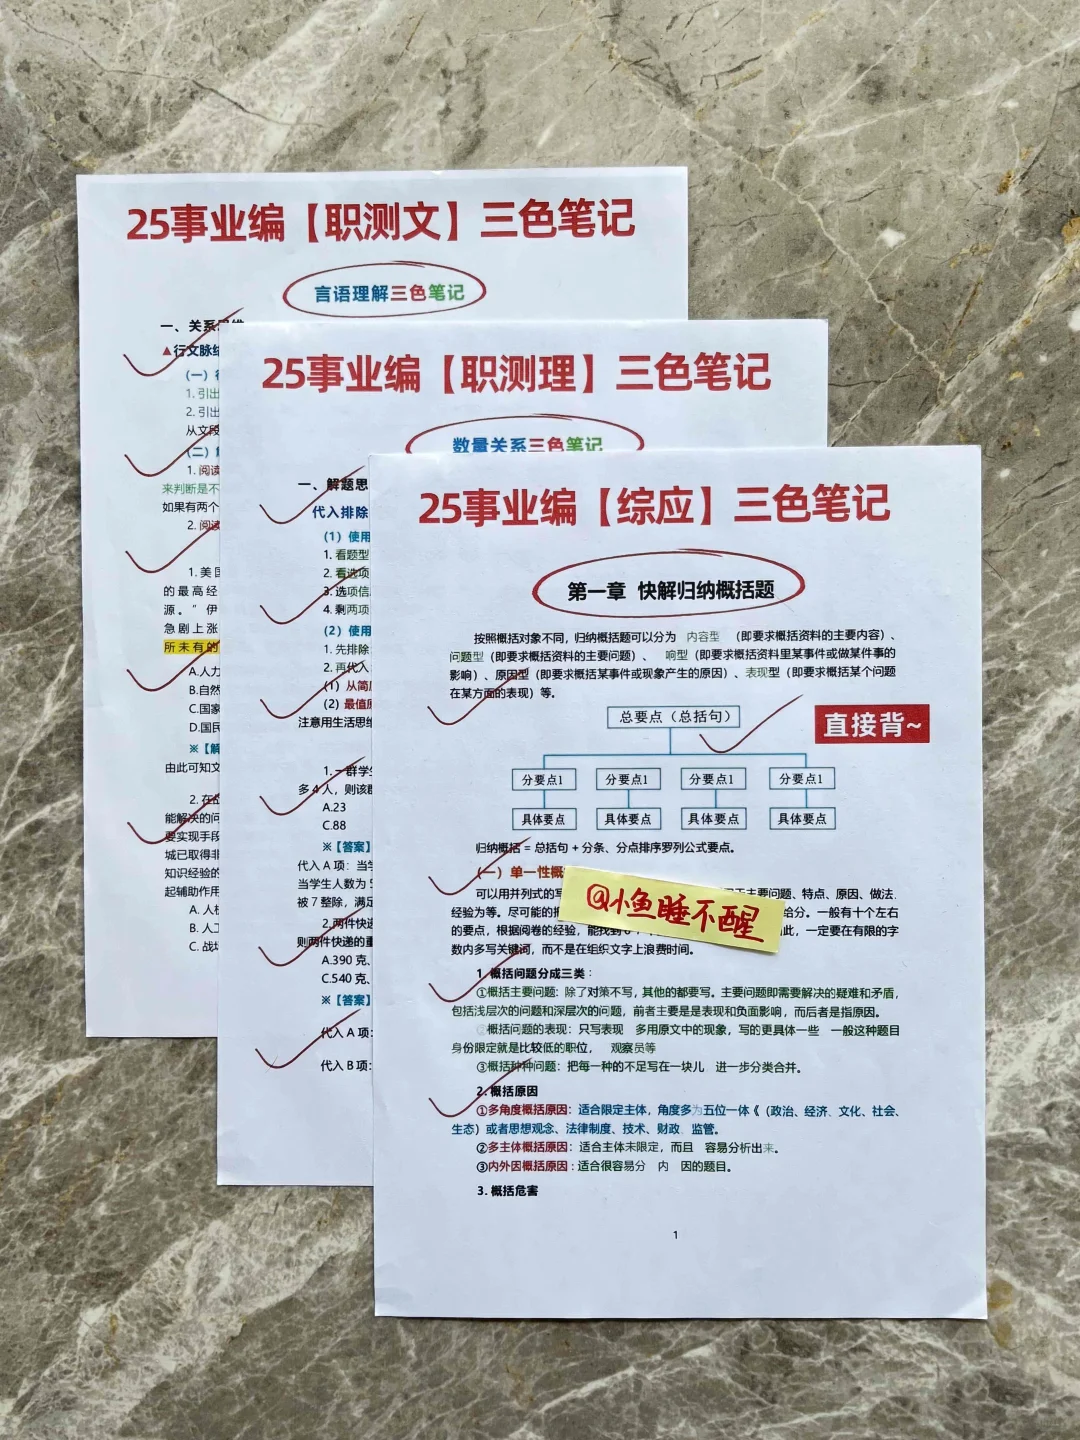 25事业编【职测文】三色笔记
言语理解三色笔记
一、关系思维
▲行文脉络
(一)
1. 引出
2. 引出
从文段
(二)
1. 阅读
来判断是不
如果有两个
2. 阅读
1. 美国
的最高经
源。”伊
急剧上涨
所未有的
A.人力
B.自然
C.国家
D.国民
※【解
由此可知文
2. 在
能解决的问
要实现手段
城已取得非
知识经验的
起辅助作用
A. 人
B. 人工
C. 战
25事业编【职测理】三色笔记
数量关系三色笔记
一、解题思
代入排除
(1)使用
1. 看题型
2. 看选项
3. 选项信
4. 剩两项
(2)使用
1. 先排除
2. 再代入
(1)从简
(2)最值
注意用生活思维
1. 一群学生
多4人，则该
A.23
C.88
※【答案】
代入 A 项：当学
当学生人数为
被 7 整除，满足
2.两件快递
则两件快递的重
A.390 克
C.540 克
※【答案】
代入 A 项
代入 B 项：
25事业编【综应】三色笔记
第一章 快解归纳概括题
按照概括对象不同，归纳概括题可以分为 内容型 （即要求概括资料的主要内容）、
问题型（即要求概括资料的主要问题）、 响型（即要求概括资料里某事件或做某件事的
影响）、原因型（即要求概括某事件或现象产生的原因）、表现型（即要求概括某个问题
在某方面的表现）等。
总要点（总括句）
直接背~
分要点1 分要点1 分要点1 分要点1
具体要点 具体要点 具体要点 具体要点
归纳概括 = 总括句 + 分条、分点排序罗列公式要点。
(一) 单一性概
可以用并列式的 主要问题、特点、原因、做法、
经验为等。尽可能的 给分。一般有十个左右
的要点，根据阅卷的经验，能找到 此，一定要在有限的字
数内多写关键词，而不是在组织文字上浪费时间。
@小鱼睡不醒
1. 概括问题分成三类：
①概括主要问题: 除了对策不写，其他的都要写。主要问题即需要解决的疑难和矛盾，
包括浅层次的问题和深层次的问题，前者主要是是表现和负面影响，而后者是指原因。
②概括问题的表现：只写表现 多用原文中的现象，写的更具体一些 一般这种题目
身份限定就是比较低的职位， 观察员等
③概括种种问题：把每一种的不足写在一块儿 进一步分类合并。
2. 概括原因
①多角度概括原因：适合限定主体，角度多为五位一体《（政治、经济、文化、社会、
生态）或者思想观念、法律制度、技术、财政、监管。
②多主体概括原因：适合主体未限定，而且 容易分析出来。
③内外因概括原因：适合很容易分 内 因的题目。
3. 概括危害
1